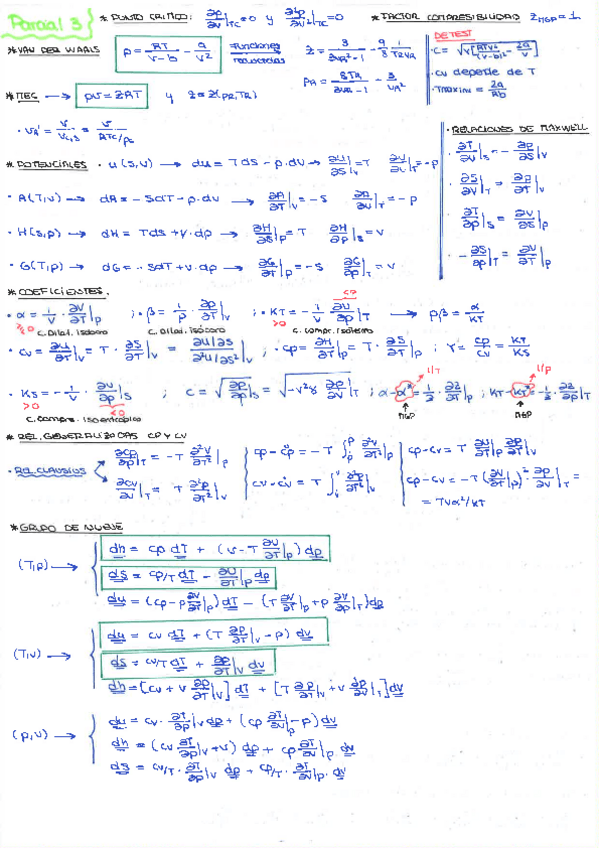 Parcial 3
* PUNTO CRITICO: ∂p/∂v|TC = 0 y ∂²p/∂v²|TC = 0
* FACTOR COMPRESIBILIDAD ZMGP = 1
* VAN DER WAALS p = RT/(v-b) - a/v² Funciones reducidas z = 3/(3vR² - 1) - 9/8 1/(TRvR)
PR = 8TR/(3vR - 1) - 3/vR²
DE TEST
· cv depende de T
· Tmaxinv = 2a/Rb
pv = ZRT y z = z(PR, TR)
· vR' = v/vc,s = v/(RTC/pc)
· RELACIONES DE MAXWELL
· ∂T/∂v|s = - ∂p/∂s|v
· ∂S/∂v|T = ∂p/∂T|v
· ∂T/∂p|s = ∂v/∂s|p
· -∂S/∂p|T = ∂v/∂T|p
* POTENCIALES · u(s,v) → du = Tds - p·dv → ∂u/∂s|v = T ∂u/∂v|s = -p
· A(T,v) → dA = -SdT - p·dv → ∂A/∂T|v = -S ∂A/∂v|T = -p
· H(s,p) → dH = Tds + v·dp → ∂H/∂s|p = T ∂H/∂p|s = v
· G(T,p) → dG = -SdT + v·dp → ∂G/∂T|p = -S ∂G/∂p|T = v
* COEFICIENTES.
· α = 1/v · ∂v/∂T|p ; · β = 1/p ∂p/∂T|v ; · KT = -1/v ∂v/∂p|T → pβ = α/KT
C. Dilat. isobaro C. Dilat. isócoro C. compr. isotermo
>0 <0
· cv = ∂u/∂T|v = T · ∂S/∂T|v = ∂u/∂s / ∂²u/∂s²|v ; · cp = ∂H/∂T|p = T · ∂S/∂T|p ; γ = cp/cv = KT/KS
· KS = -1/v · ∂v/∂p|s ; c = √(∂p/∂ρ|s) = √(-v²γ ∂p/∂v|T)
>0 <0 1/T 1/p
C. compr. isoentrópico MGP MGP
* REL. GENERALIZADAS CP y CV
· REL. CLAUSIUS
∂cp/∂p|T = -T ∂²v/∂T²|p
∂cv/∂v|T = T ∂²p/∂T²|v
cp - cv = T ∂v/∂T|p ∂p/∂T|v
cp - cv = -T (∂v/∂T|p)² ∂p/∂v|T =
= Tvα²/KT
* GRUPO DE NUEVE
(T,p) →
dh = cp dT + (v - T ∂v/∂T|p) dp
ds = cp/T dT - ∂v/∂T|p dp
du = (cp - p ∂v/∂T|p) dT - (T ∂v/∂T|p + p ∂v/∂p|T) dp
(T,v) →
du = cv dT + (T ∂p/∂T|v - p) dv
ds = cv/T dT + ∂p/∂T|v dv
dh = [cv + v ∂p/∂T|v] dT + [T ∂p/∂T|v + v ∂p/∂v|T] dv
(p,v) →
du = cv · ∂T/∂p|v dp + (cp ∂T/∂v|p - p) dv
dh = (cv ∂T/∂p|v + v) dp + cp ∂T/∂v|p dv
ds = cv/T · ∂T/∂p|v dp + cp/T · ∂T/∂v|p · dv